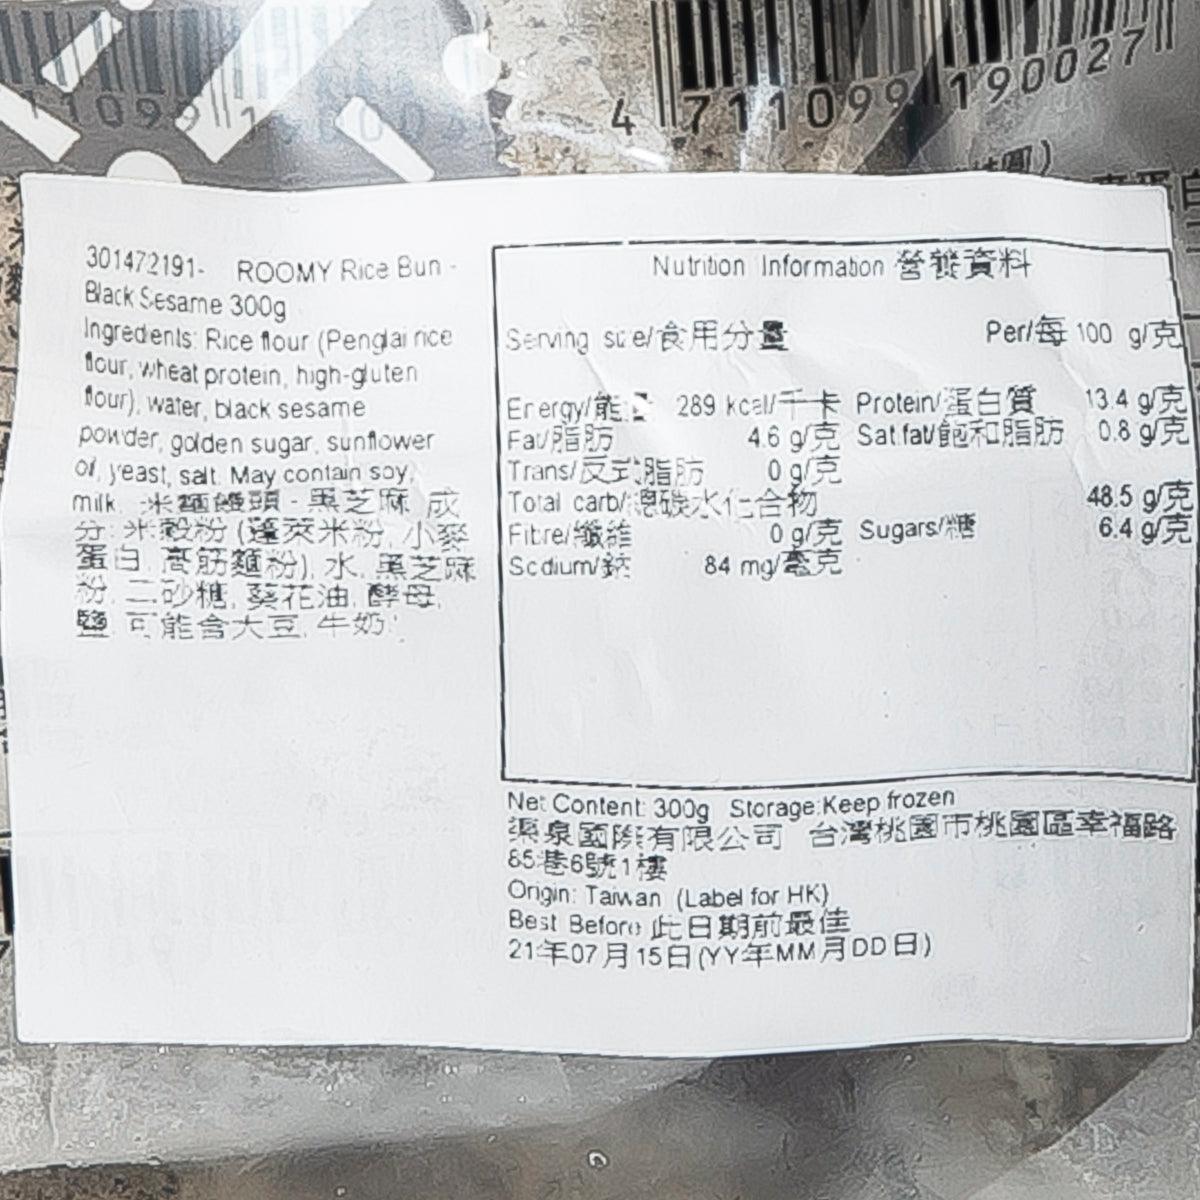 4 711099 190027
301472191- ROOMY Rice Bun -
Black Sesame 300g
Ingredients: Rice flour (Penglai rice
flour, wheat protein, high-gluten
flour), water, black sesame
powder, golden sugar, sunflower
oil, yeast, salt. May contain soy,
milk. 米麵饅頭 - 黑芝麻 成
分: 米穀粉 (蓬萊米粉, 小麥
蛋白, 高筋麵粉), 水, 黑芝麻
粉, 二砂糖, 葵花油, 酵母,
鹽. 可能含大豆, 牛奶.
Nutrition Information 營養資料
Serving size/食用分量 Per/每 100 g/克
Energy/能量 289 kcal/千卡 Protein/蛋白質 13.4 g/克
Fat/脂肪 4.6 g/克 Sat.fat/飽和脂肪 0.8 g/克
Trans/反式脂肪 0 g/克
Total carb/總碳水化合物 48.5 g/克
Fibre/纖維 0 g/克 Sugars/糖 6.4 g/克
Sodium/鈉 84 mg/毫克
Net Content: 300g Storage:Keep frozen
泉國際有限公司 台灣桃園市桃園區幸福路
85巷6號1樓
Origin: Taiwan (Label for HK)
Best Before 此日期前最佳
21年07月15日(YY年MM月DD日)